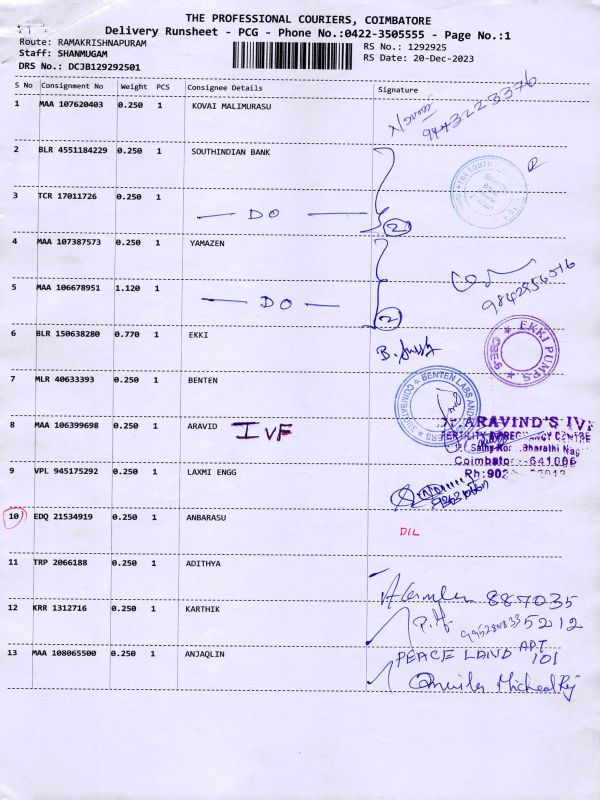 THE PROFESSIONAL COURIERS, COIMBATORE
Delivery Runsheet - PCG - Phone No.:0422-3505555 - Page No.:1
Route: RAMAKRISHNAPURAM
RS No.: 1292925
Staff: SHANMUGAM
RS Date: 20-Dec-2023
DRS No.: DCJB129292501
S No Consignment No Weight PCS Consignee Details Signature
1 MAA 107620403 0.250 1 KOVAI MALIMURASU
9443223376
2 BLR 4551184229 0.250 1 SOUTHINDIAN BANK
3 TCR 17011726 0.250 1
— DO —
2
4 MAA 107387573 0.250 1 YAMAZEN
5 MAA 106678951 1.120 1
— DO —
2
9842956516
6 BLR 150638280 0.770 1 EKKI
B.
EKKI PUMPS
CBE-9
7 MLR 40633393 0.250 1 BENTEN
BENTEN LABS AND
COIMBATORE
8 MAA 106399698 0.250 1 ARAVID IVF
Dr.ARAVIND'S IVF
FERTILITY & PREGNANCY CENTRE
Sathy Bharathi Nag
Coimbator 641006
Ph:902
9 VPL 945175292 0.250 1 LAXMI ENGG
10 EDQ 21534919 0.250 1 ANBARASU
DIL
11 TRP 2066188 0.250 1 ADITHYA
887035
5212
12 KRR 1312716 0.250 1 KARTHIK
13 MAA 108065500 0.250 1 ANJAQLIN
PEACE LAND APT
101